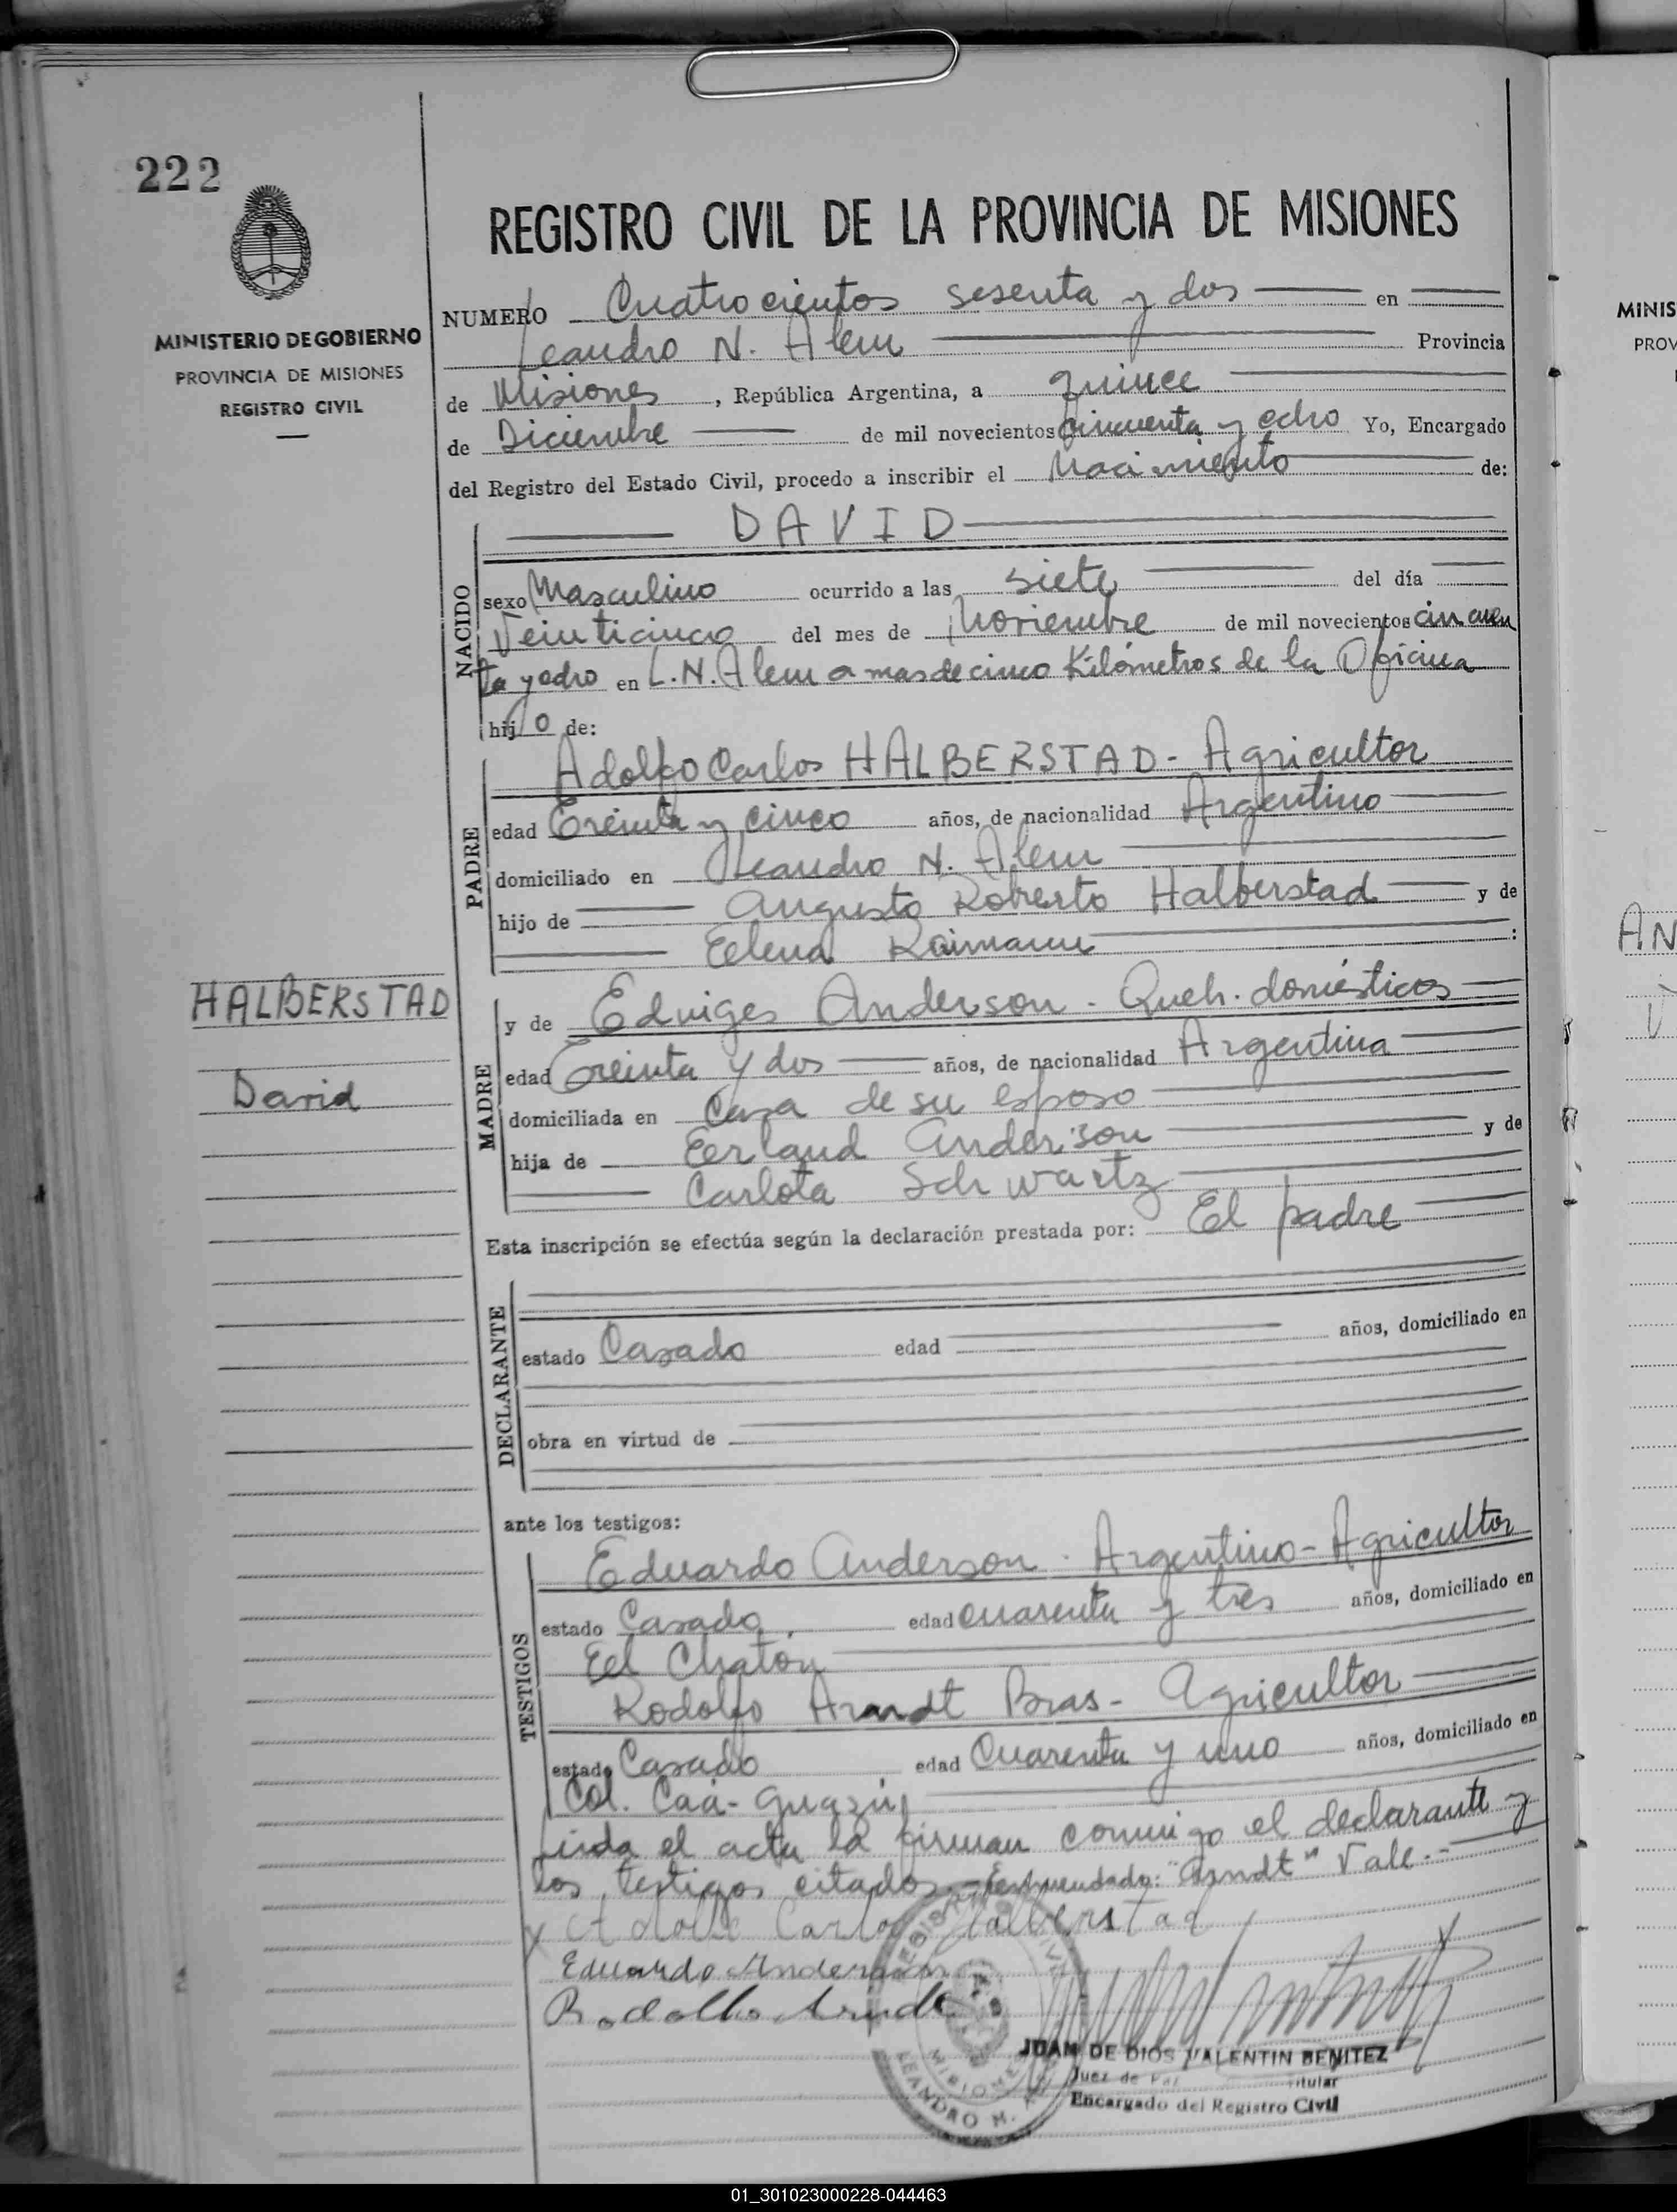 222
REGISTRO CIVIL DE LA PROVINCIA DE MISIONES
MINISTERIO DE GOBIERNO
PROVINCIA DE MISIONES
REGISTRO CIVIL
NUMERO Cuatrocientos sesenta y dos en
Leandro N. Alem Provincia
de Misiones, República Argentina, a quince
de Diciembre de mil novecientos cincuenta y ocho Yo, Encargado
del Registro del Estado Civil, procedo a inscribir el Nacimiento de:
NACIDO
DAVID
sexo Masculino ocurrido a las siete del día
Veinticinco del mes de Noviembre de mil novecientos cincuen
ta y ocho en L.N. Alem a mas de cinco Kilómetros de la Oficina
hijo de:
PADRE
Adolfo Carlos HALBERSTAD - Agricultor
edad Treinta y cinco años, de nacionalidad Argentino
domiciliado en Leandro N. Alem
hijo de Augusto Roberto Halberstad y de
Elena Raimann :
HALBERSTAD
David
MADRE
y de Edviges Anderson - Queh. domésticos
edad Treinta y dos años, de nacionalidad Argentina
domiciliada en Casa de su esposo
hija de Eerland Anderson y de
Carlota Schwartz
Esta inscripción se efectúa según la declaración prestada por: El padre
DECLARANTE
estado Casado edad años, domiciliado en
obra en virtud de
ante los testigos:
TESTIGOS
Eduardo Anderson - Argentino - Agricultor
estado Casado, edad cuarenta y tres años, domiciliado en
El Chatón
Rodolfo Arndt Bras - Agricultor
estado Casado edad Cuarenta y uno años, domiciliado en
Col. Caá-Guazú,
Leída el acta la firman conmigo el declarante y
los testigos citados. - Enmendado: "Arndt" Vale.-
x Adolfo Carlos Halberstad
Eduardo Anderson
Rodolfo Arndt
JUAN DE DIOS VALENTIN BENITEZ
Juez de Paz Titular
Encargado del Registro Civil
REGISTRO CIVIL
MISIONES
LEANDRO N.
MINIS
PROV
AN
01_301023000228-044463